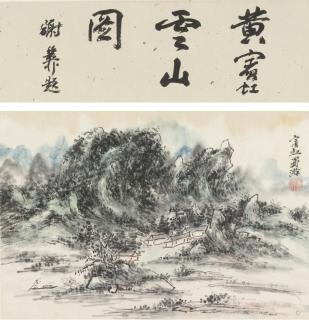 黄賓虹
雲山
圖
謝稚題
賓虹蜀游